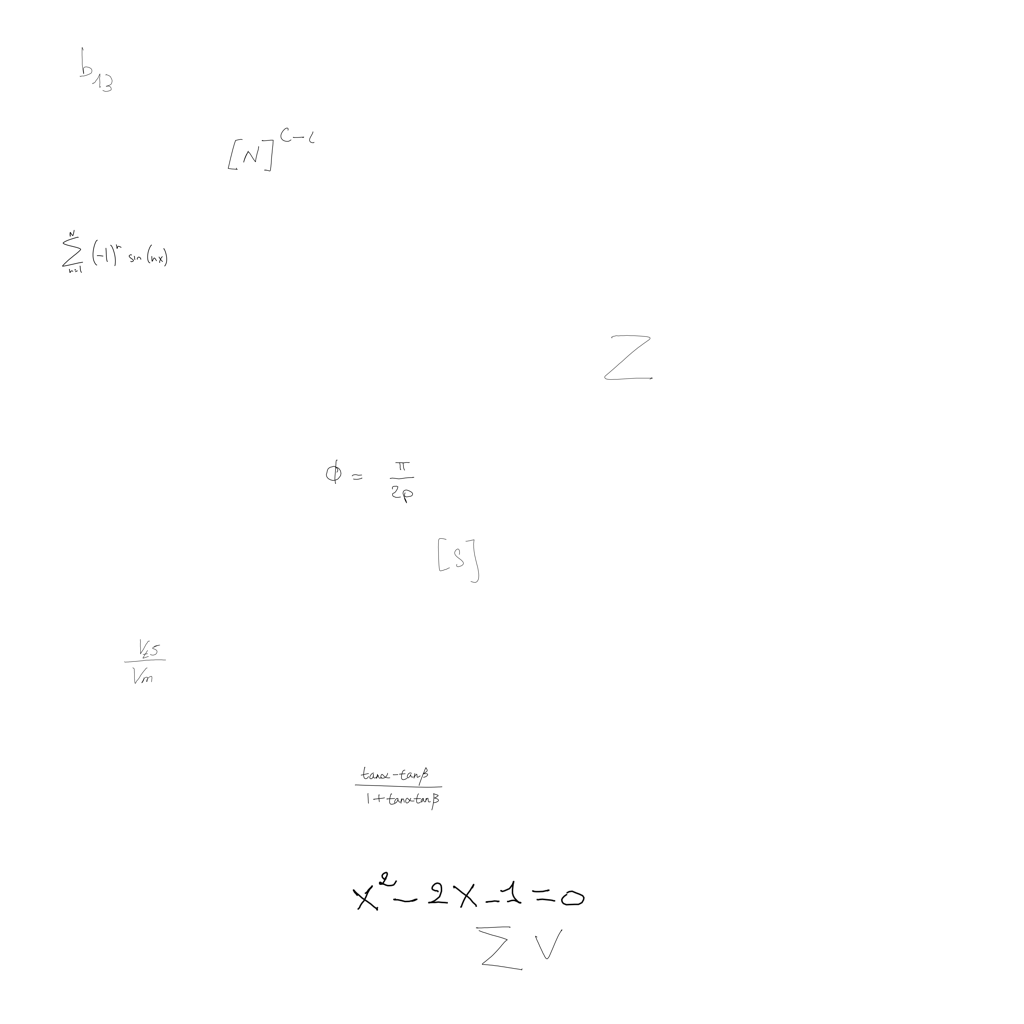 b_{13}
[N]^{C-c}
\sum_{n=1}^{N} (-1)^n sin(nx)
Z
\phi = \frac{\pi}{2p}
[S]
\frac{V_{z}s}{V_m}
\frac{tan\alpha - tan\beta}{1 + tan\alpha tan\beta}
x^2 - 2x - 1 = 0
\sum V